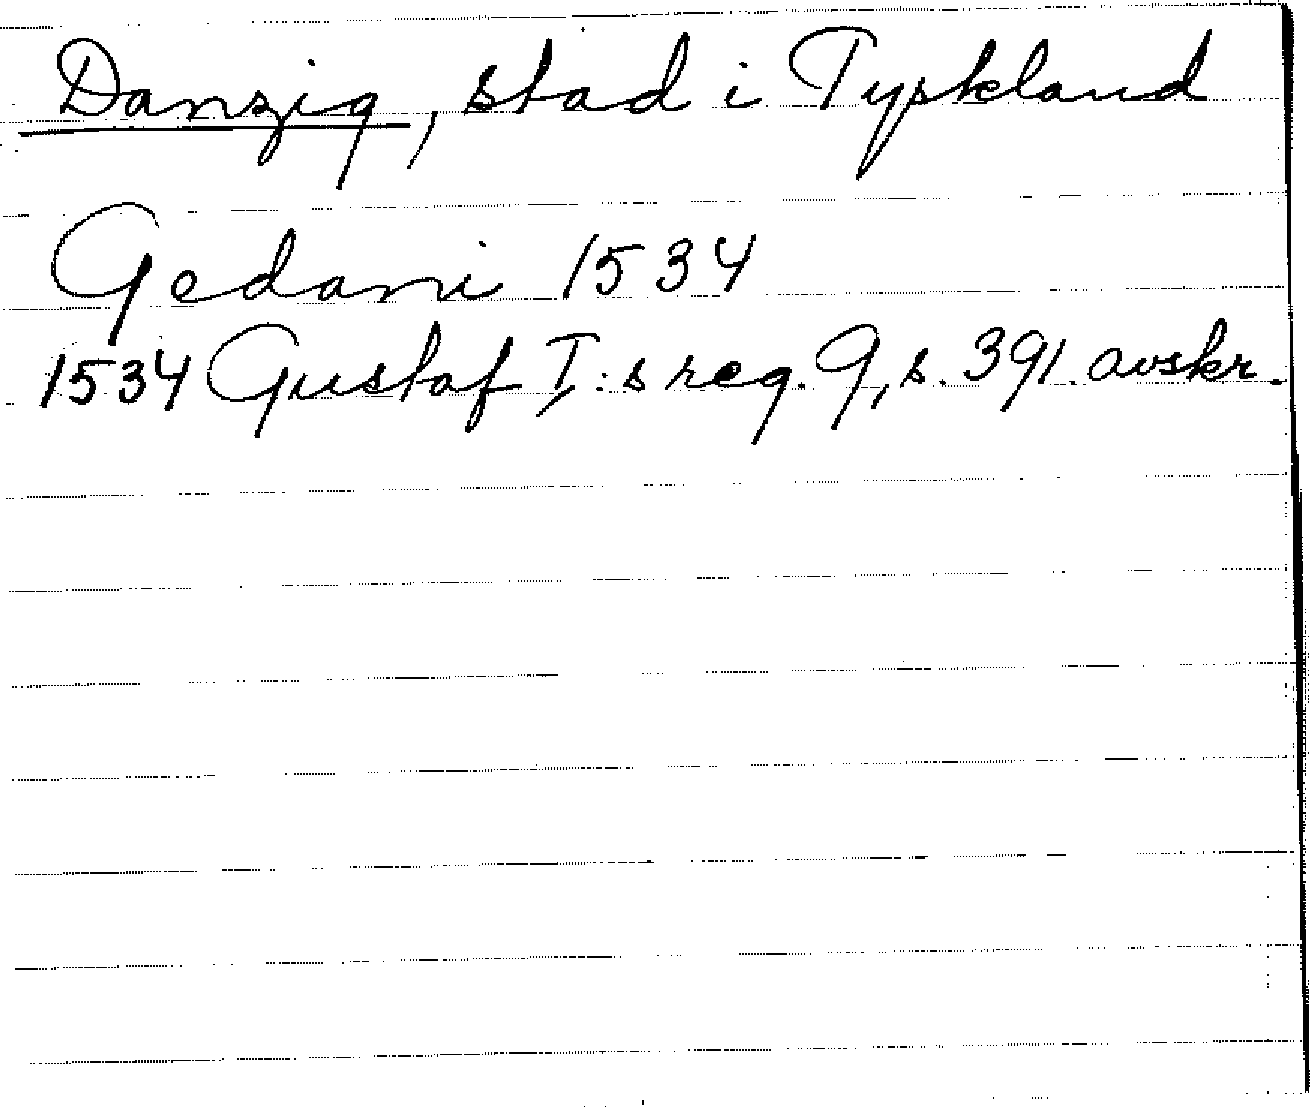 Danzig, stad i Tyskland
Gedani 1534
1534 Gustaf I:s reg. 9, s. 391. avskr.